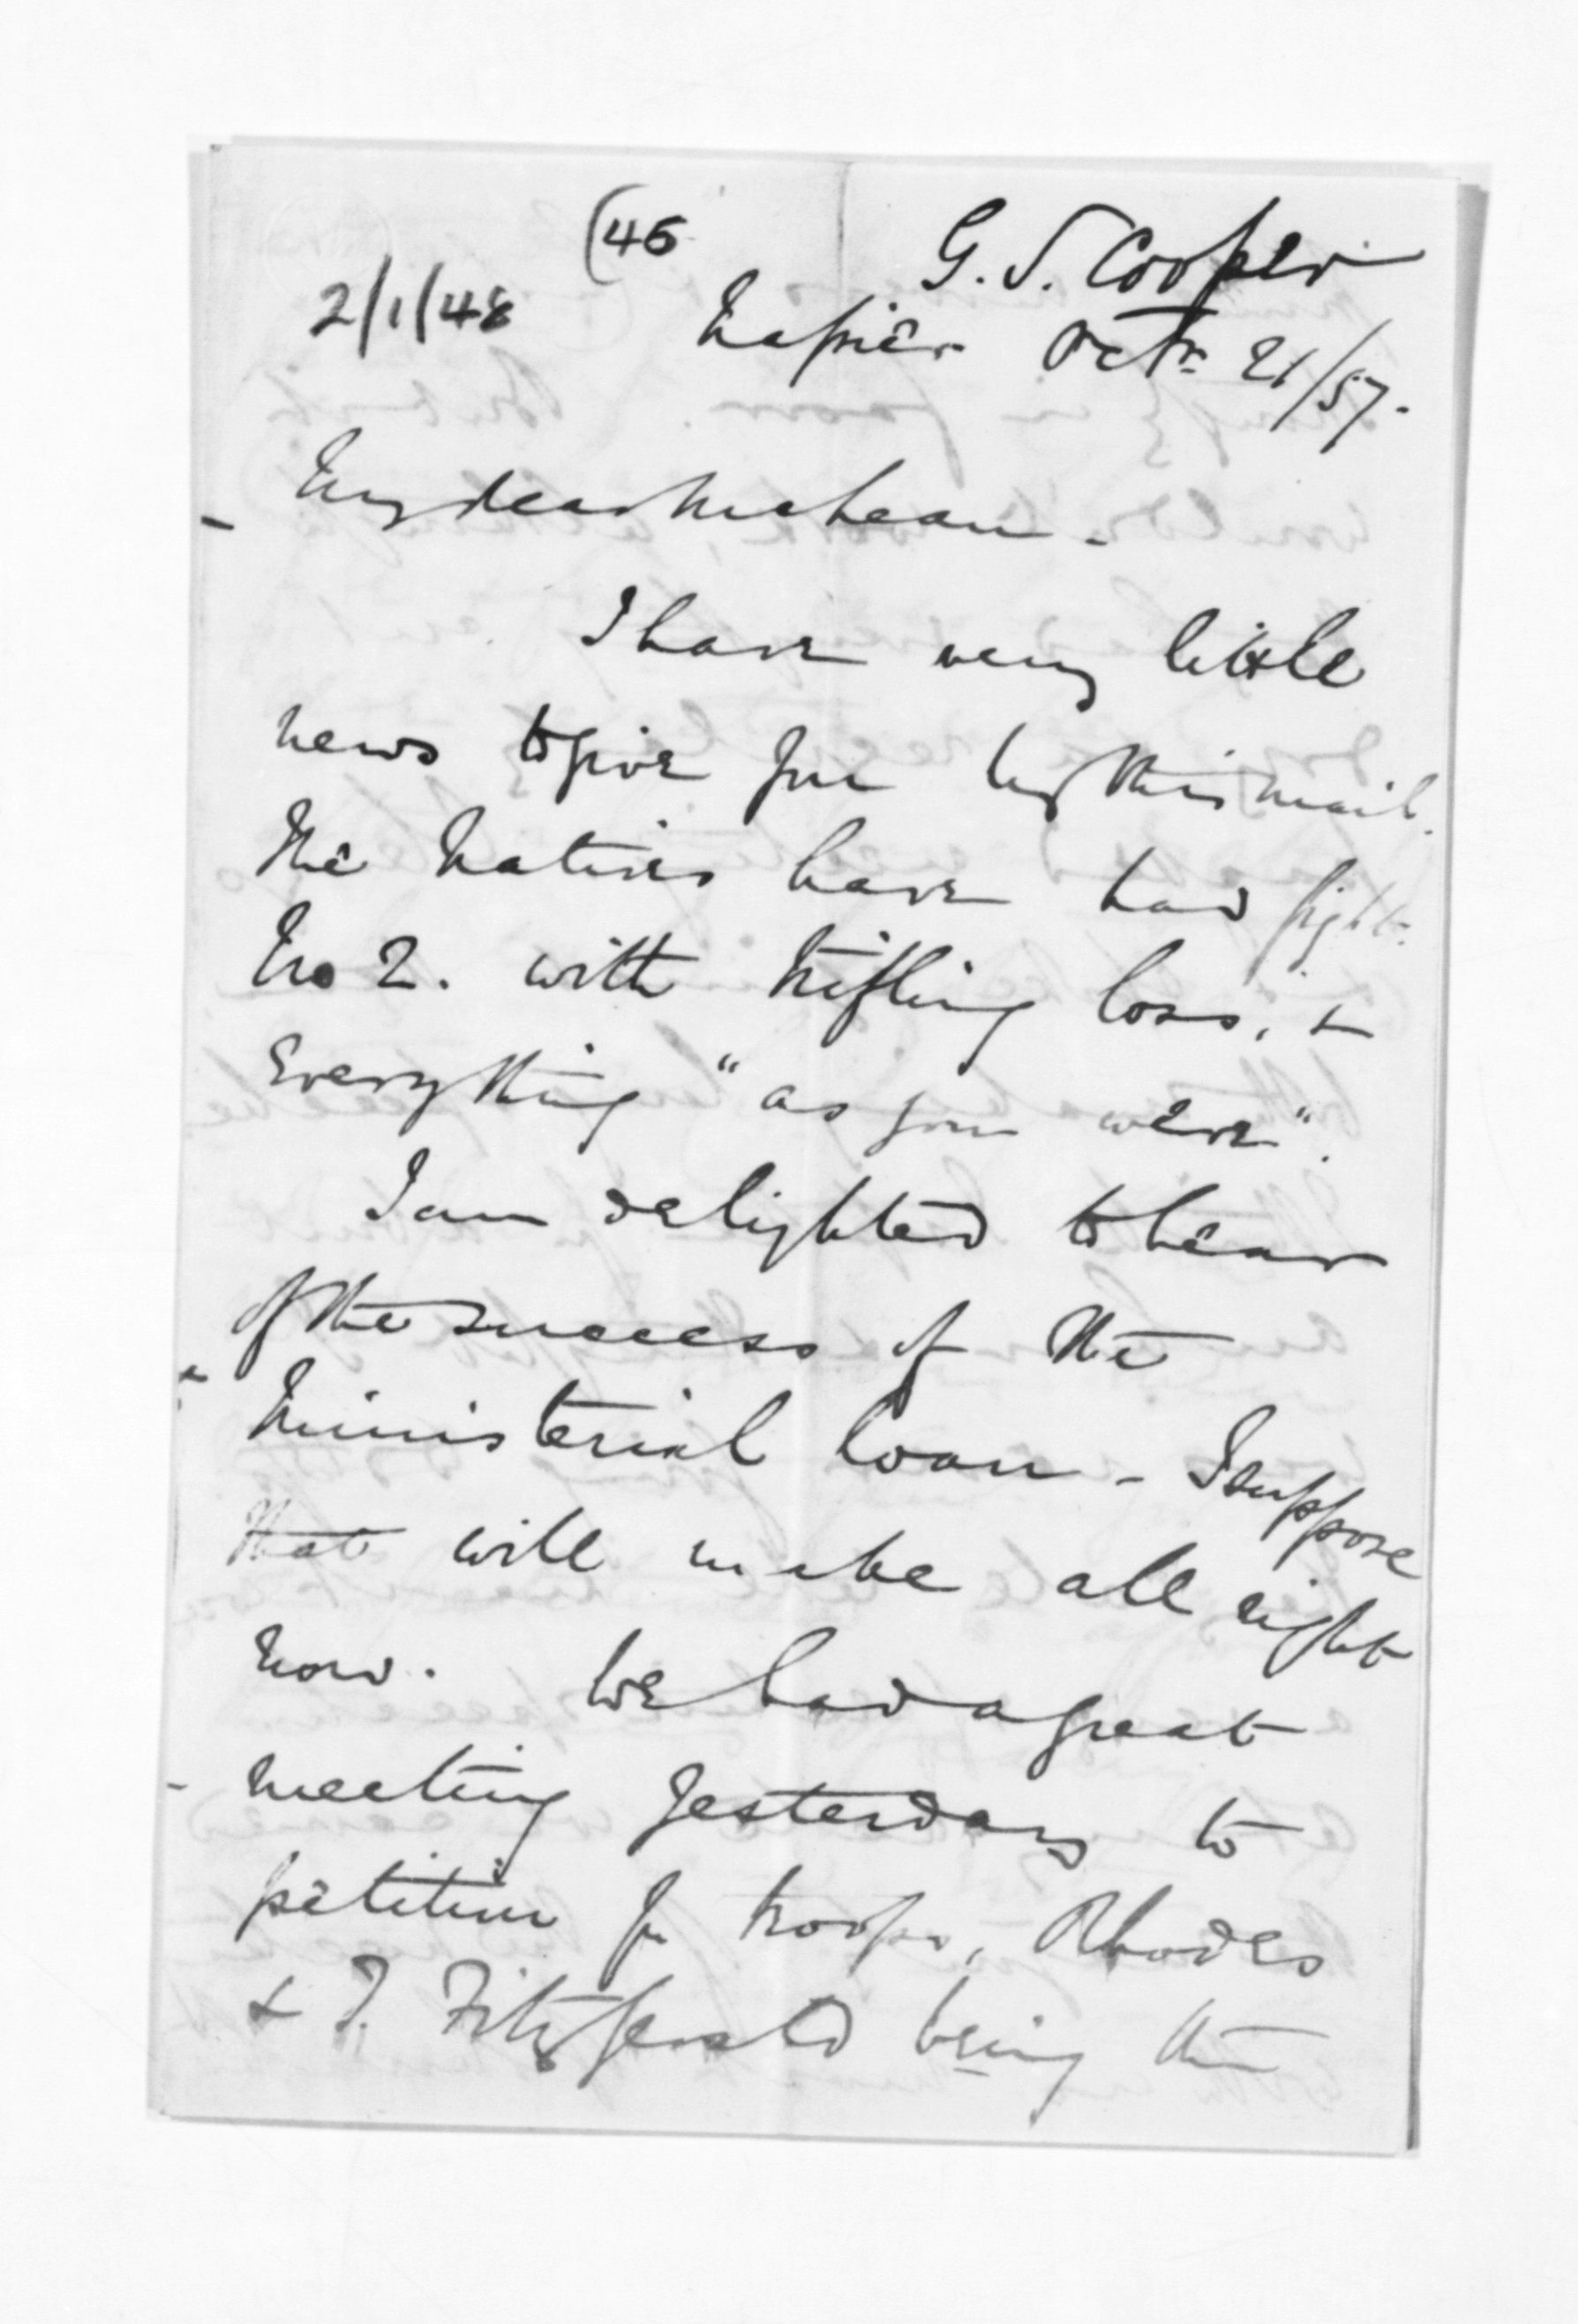 (46
G. S. Cooper
2/1/48
Napier Octr. 21/57.
My dear McLean.
I have very little
news to give you by this mail.
The Natives have had fight
No 2. with trifling loss, &
Everything "as you were".
I am delighted to hear
of the success of the
Ministerial Loan - I suppose
that will make all right
now. We had a great
meeting yesterday to
petition for troops, Rhodes
& J. Fitzgerald being the